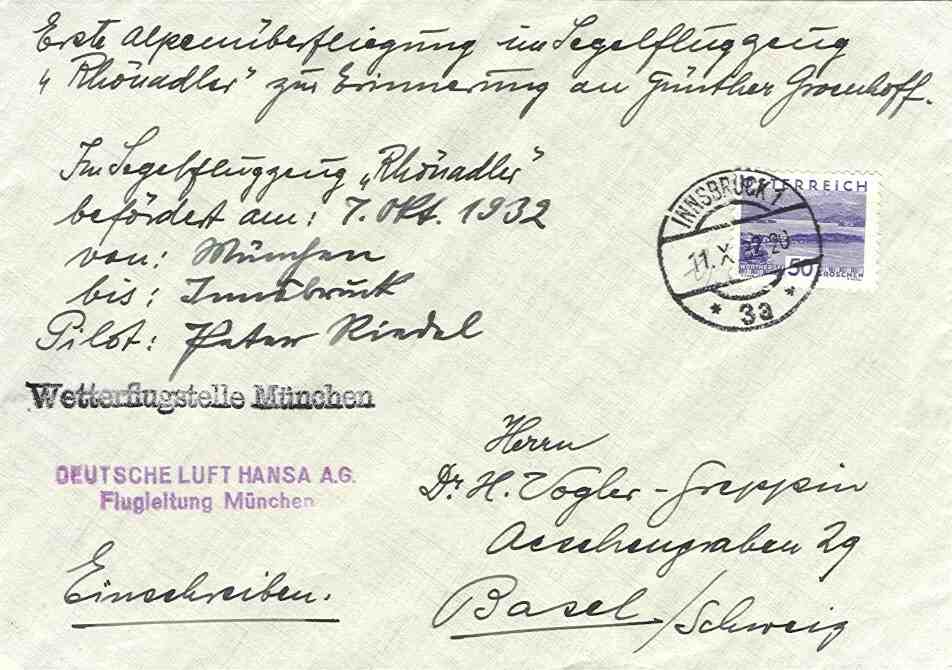 Erste Alpenüberfliegung im Segelfluggzeug
„Rhönadler" zur Erinnerung an Günther Groenhoff.
Im Segelfluggzeug „Rhönadler"
befördert am: 7. Okt. 1932
von: München
bis: Innsbruck
Pilot: Peter Riedel
INNSBRUCK 1
11. X. 32 20
* 3a *
ÖSTERREICH
50
GROSCHEN
Wetterflugstelle München
DEUTSCHE LUFT HANSA A.G.
Flugleitung München
Herrn
Dr H. Vogler-Greppin
Aeschengraben 29
Basel /Schweiz
Einschreiben.